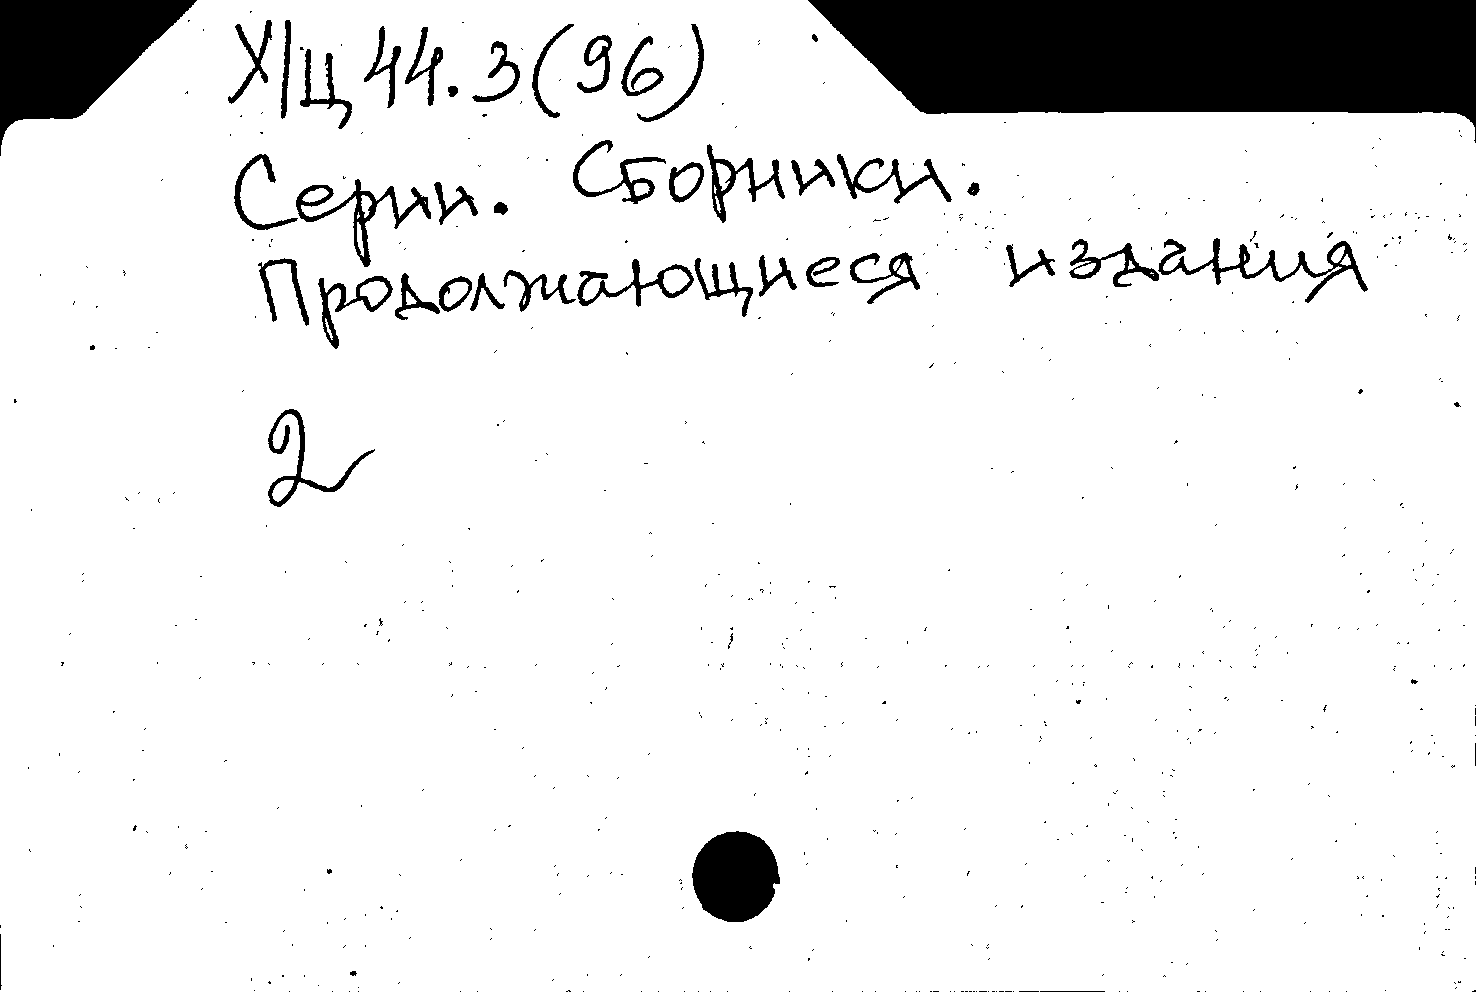 Х/Ц44.3(96)
Серии. Сборники.
Продолжающиеся издания
2